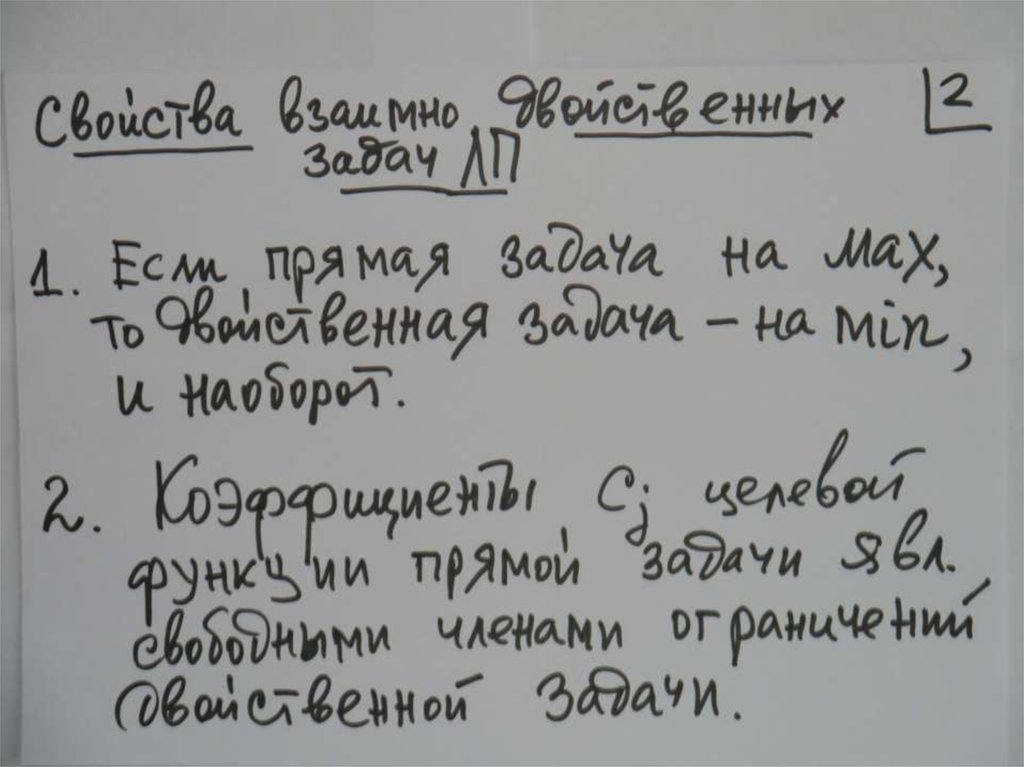 Свойства взаимно двойственных 2
задач ЛП
1. Если прямая задача на max,
то двойственная задача – на min,
и наоборот.
2. Коэффициенты Cj целевой
функции прямой задачи явл.
свободными членами ограничений
двойственной задачи.